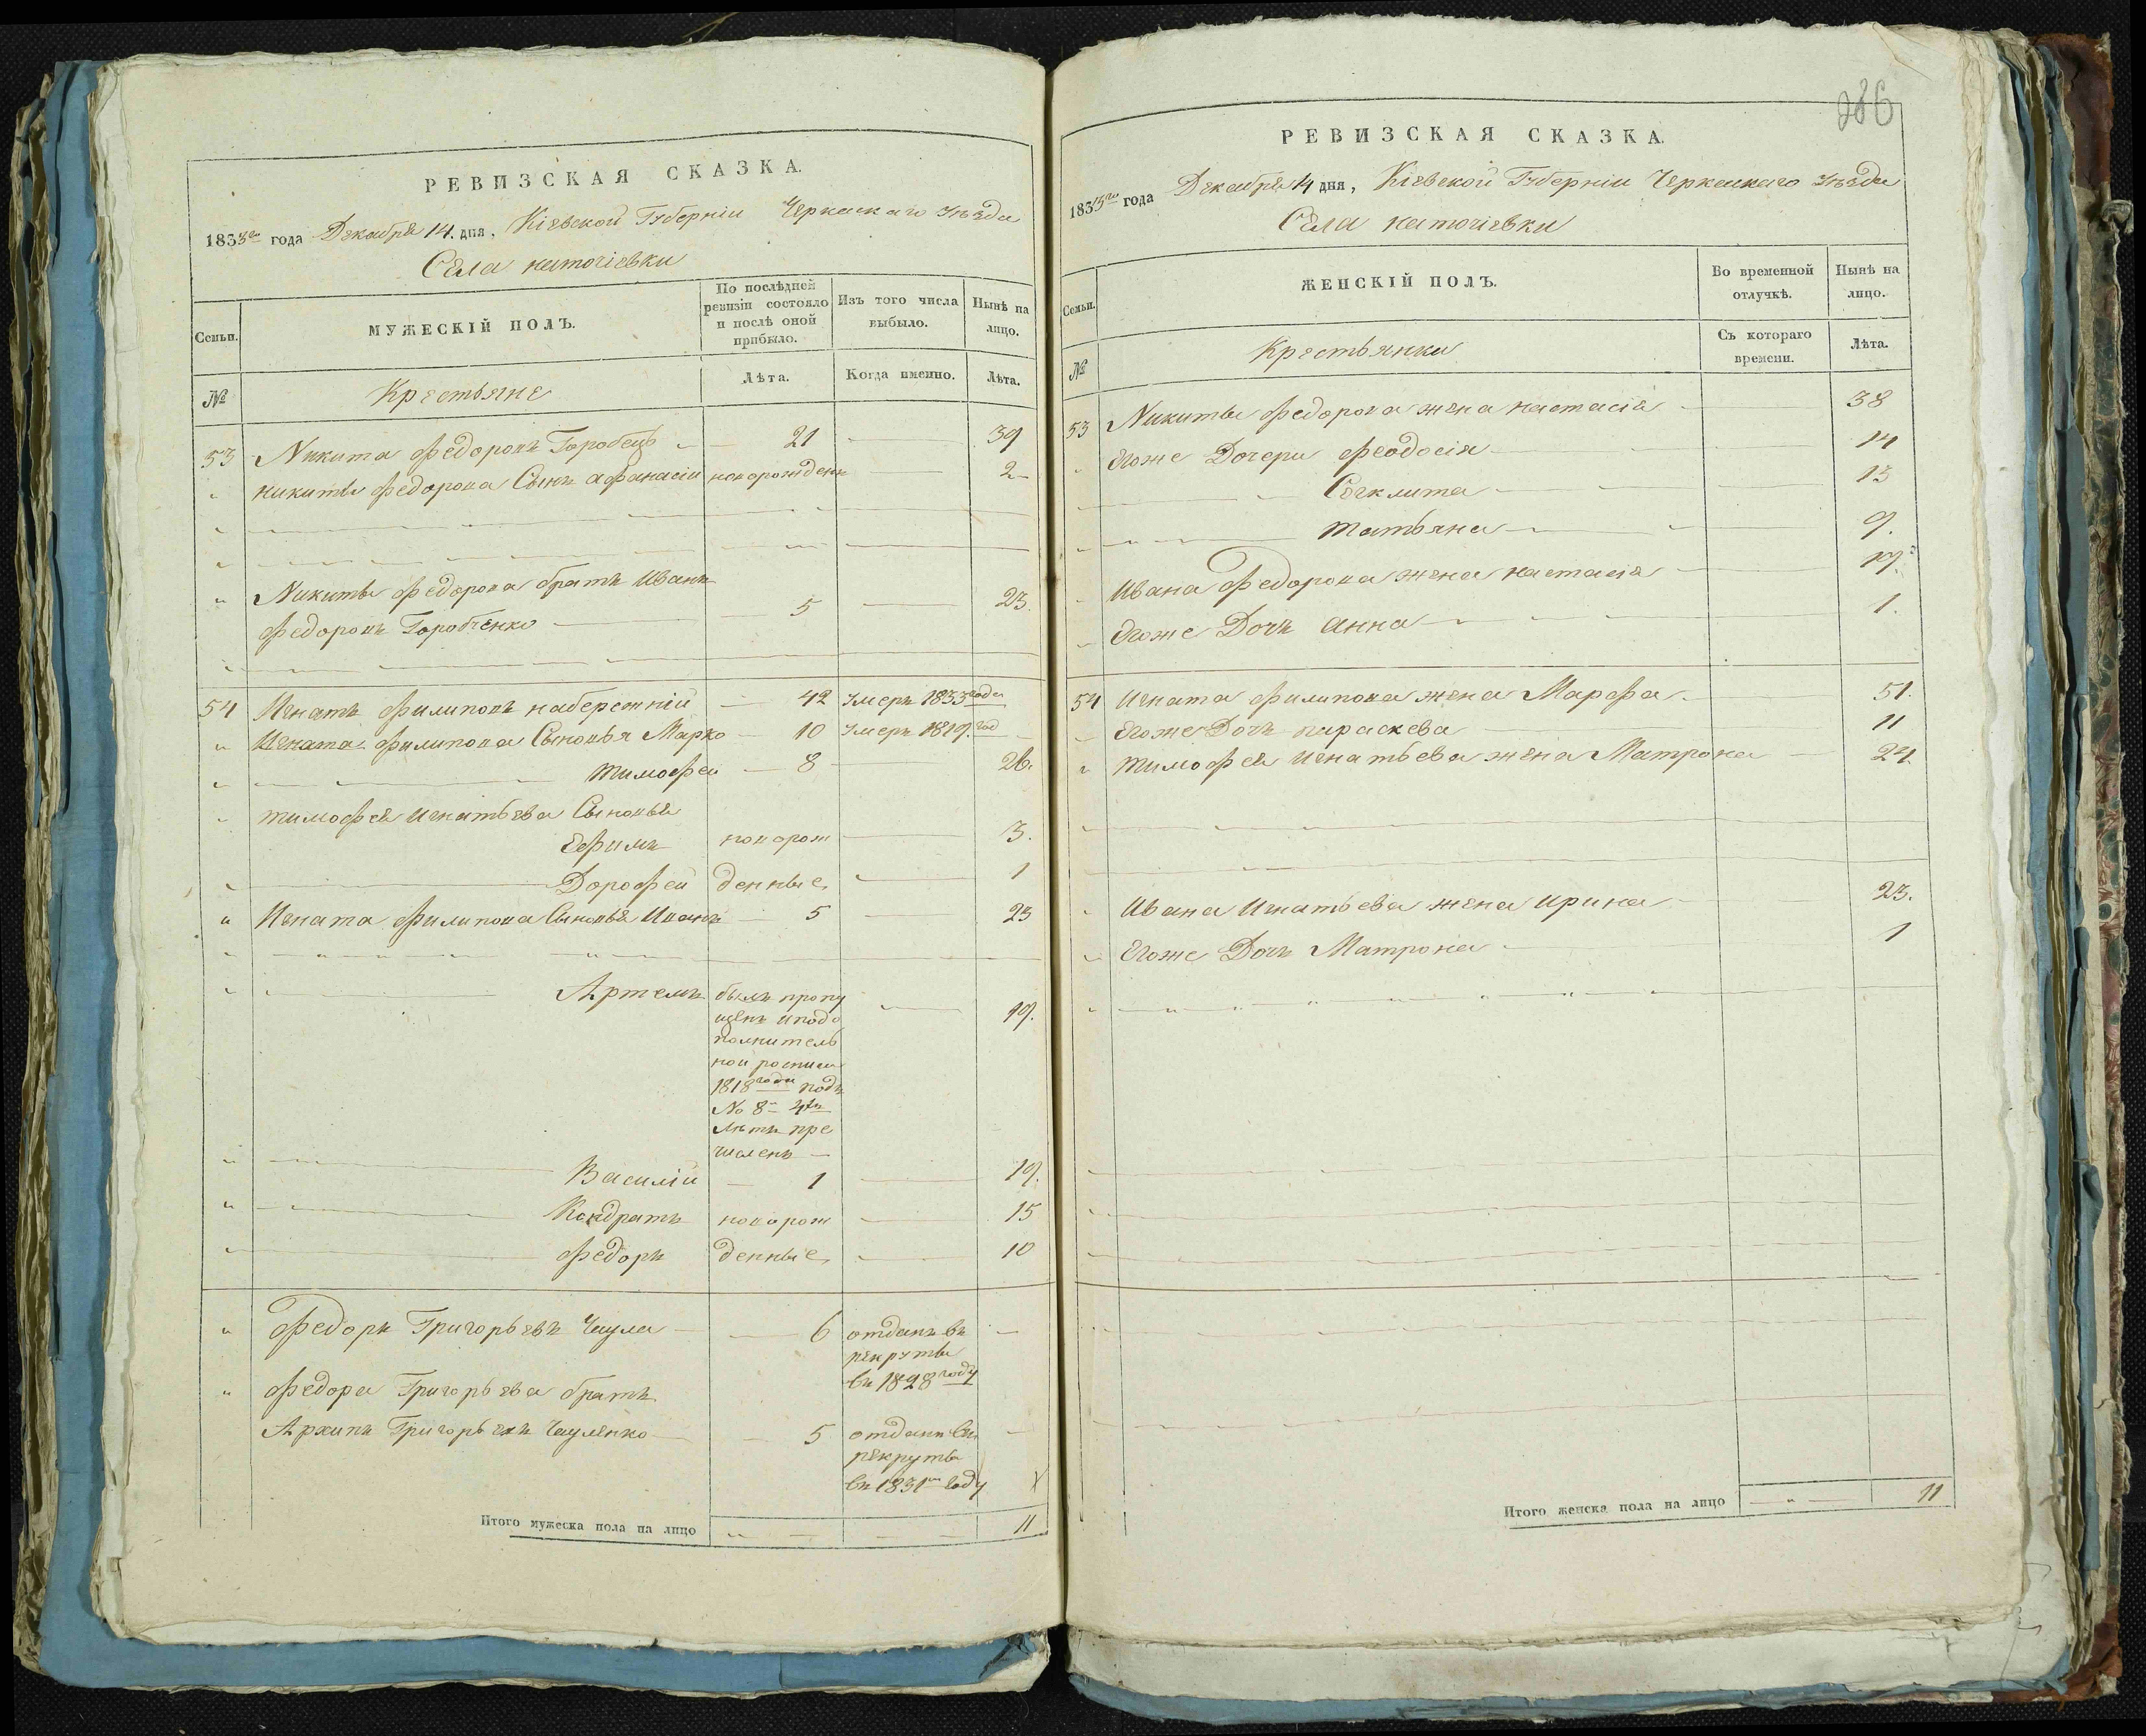 РЕВИЗСКАЯ СКАЗКА.
1833го года Декабря 14. дня, Кіевской Губерніи Черкаскаго Уѣзда
Села
Семьи.
МУЖЕСКІЙ ПОЛЪ.
По послѣдней ревизіи состояло и послѣ оной прибыло.
Изъ того числа выбыло.
Нынѣ на лицо.
№
Крестьяне
Лѣта.
Когда именно.
Лѣта.
53 Никита Федоровъ Горобець 21 39
" Никиты Федорова Сынъ Афанасій новорожденъ 2
" Никиты Федорова братъ Иванъ
Федоровъ Горобченко 5 23.
54 Игнатъ Филиповъ набережній 42 Умеръ 1833 года
" Игната Филипова Сыновья Марко 10 Умеръ 1819. год
" Тимофей 8 26.
" Тимофея Игнатьева Сыновья
Ефимъ новорож 3.
" Дорофей денные 1
" Игната Филипова Сыновья Иванъ 5 23
" Артемъ былъ пропу 19.
щенъ и по до
полнитель
ной росписи
1818 года подъ
№ 8 4хъ
лѣтъ при
численъ
" Василій 1 19.
" Кондратъ новорож 15
" Федоръ денные 10
" Федоръ Григорьевъ Чаула 6 отданъ въ
рекруты
въ 1828 году
" Федора Григорьева братъ
Архипъ Григорьевъ Чауленко 5 отданъ въ
рекруты
въ 1831м году
Итого мужеска пола на лицо 11
286
РЕВИЗСКАЯ СКАЗКА.
1833го года Декабря 14 дня, Кіевской Губерніи Черкаскаго Уѣзда
Села
Семьи.
ЖЕНСКІЙ ПОЛЪ.
Во временной отлучкѣ.
Нынѣ на лицо.
№
Крестьянки
Съ котораго времени.
Лѣта.
53 Никиты Федорова жена настасія 38
" Егоже Дочери Феодосія 14
Секлита 13
" Татьяна 9.
" Ивана Федорова жена настасія 19.
" Егоже Дочь Анна 1.
54 Игната Филипова жена Марфа 51.
" Егоже Дочь параскева 11
" Тимофея Игнатьева жена Матрона 24
" Ивана Игнатьева жена Ирина 23.
" Егоже Дочь Матрона 1
Итого женска пола на лицо 11